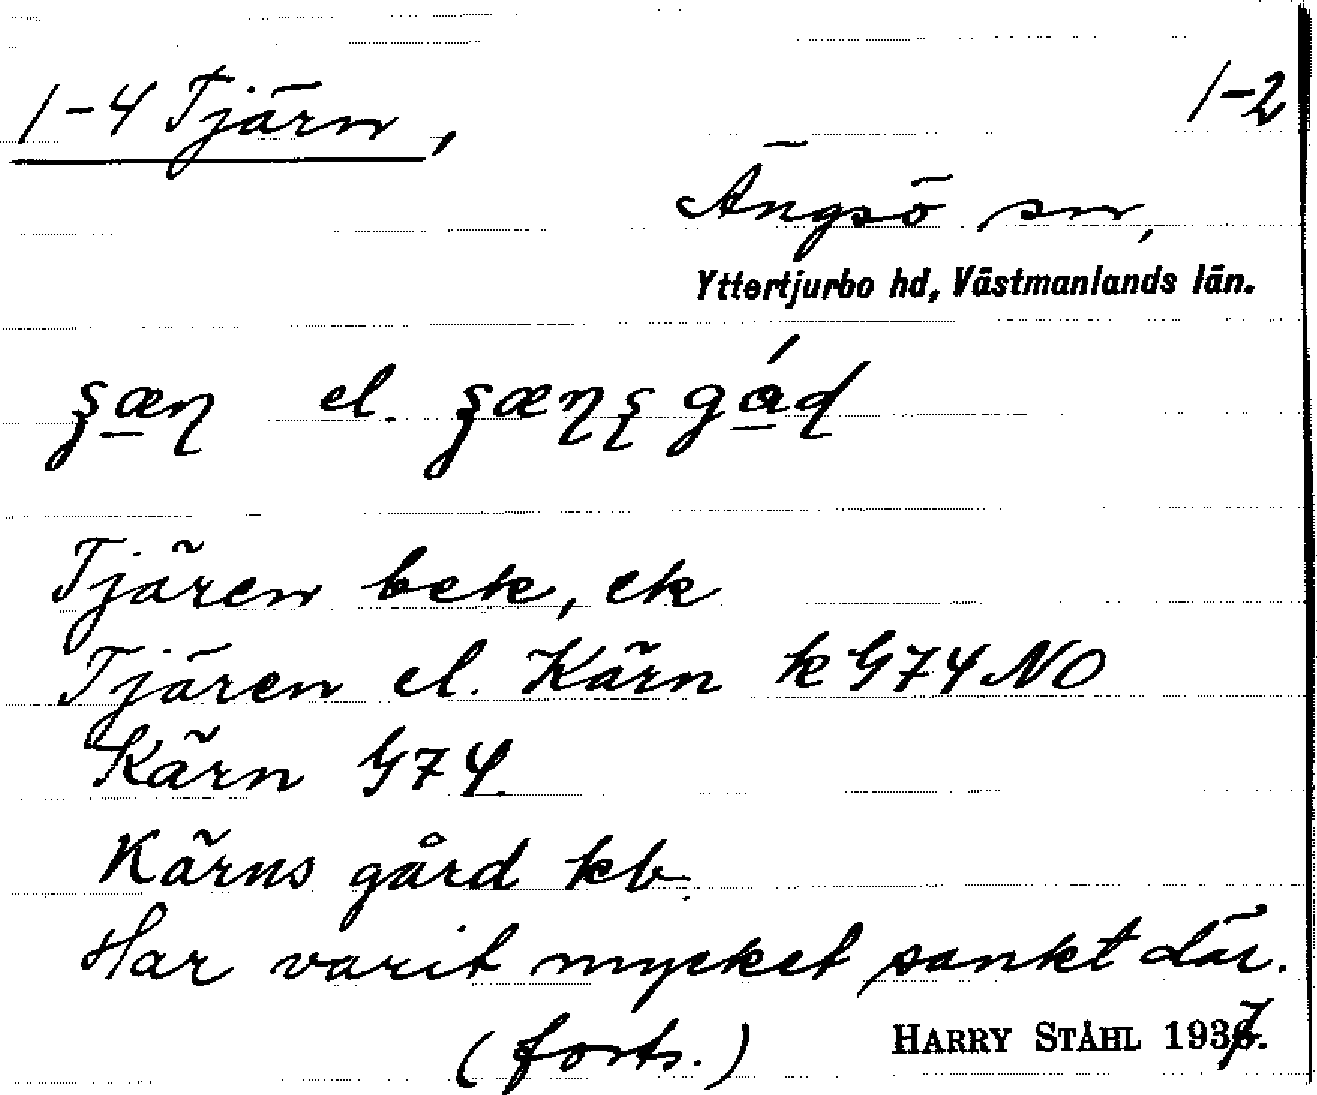 1-4 Tjärn, 1-2
Ängsö sn,
Yttertjurbo hd, Västmanlands län.
el.
Tjären bek, ek
Tjären el. Kärn k G74 NO
Kärn G74
Kärns gård kb.
Har varit mycket sankt där.
(forts.) HARRY STÅHL 1937.